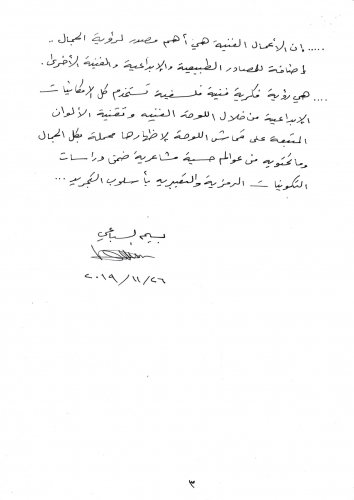 ..... إن الأعمال الفنية هي أهم مصدر لرؤية الجمال ..
إضافة للمصادر الطبيعية والإبداعية والفنية الأخرى .
.... هي رؤية فكرية فنية فلسفية تستخدم كل الإمكانيات
الإبداعية من خلال اللوحة الفنية وتقنية الألوان
المتبعة على قماش اللوحة لإظهارها محملة بكل الجمال
وما تحتويه من عوالم حسية مشاعرية ضمن دراسات
التكوينات الرمزية والتعبيرية بأسلوب التجريد ...
بسيم السباعي
٢٠١٩/١١/٢٦
٣